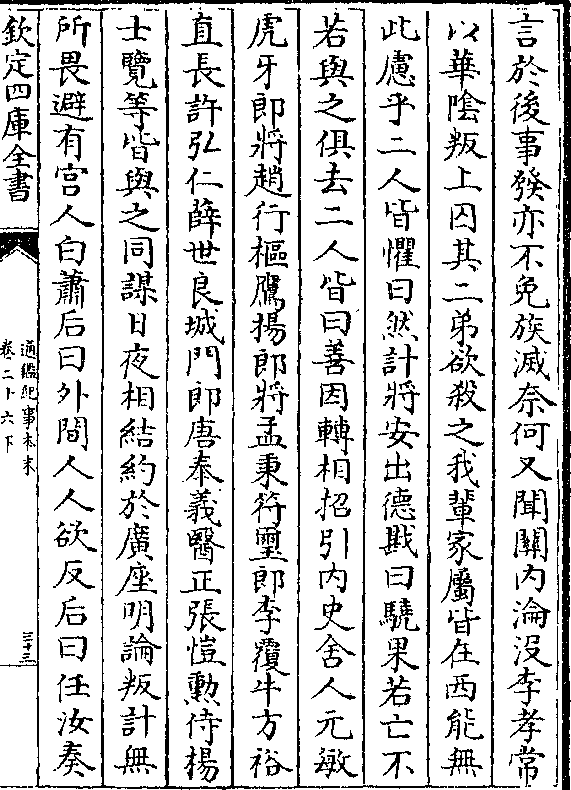 言於後事發亦不免族滅奈何又聞關内淪没李孝常
以華隂叛上囚其二弟欲殺之我輩家屬皆在西能無
此慮乎二人皆懼曰然計將安出德戡曰驍果若亡不
若與之俱去二人皆曰善因轉相招引内史舍人元敏
虎牙郎將趙行樞鷹揚郎將孟秉符璽郎李覆牛方裕
直長許弘仁薛世良城門郎唐奉義醫正張愷勲侍楊
士覽等皆與之同謀日夜相結約於廣座明論叛計無
所畏避有宫人白蕭后曰外間人人欲反后曰任汝奏
欽定四庫全書
通鑑紀事本末
卷二十六下
三十三